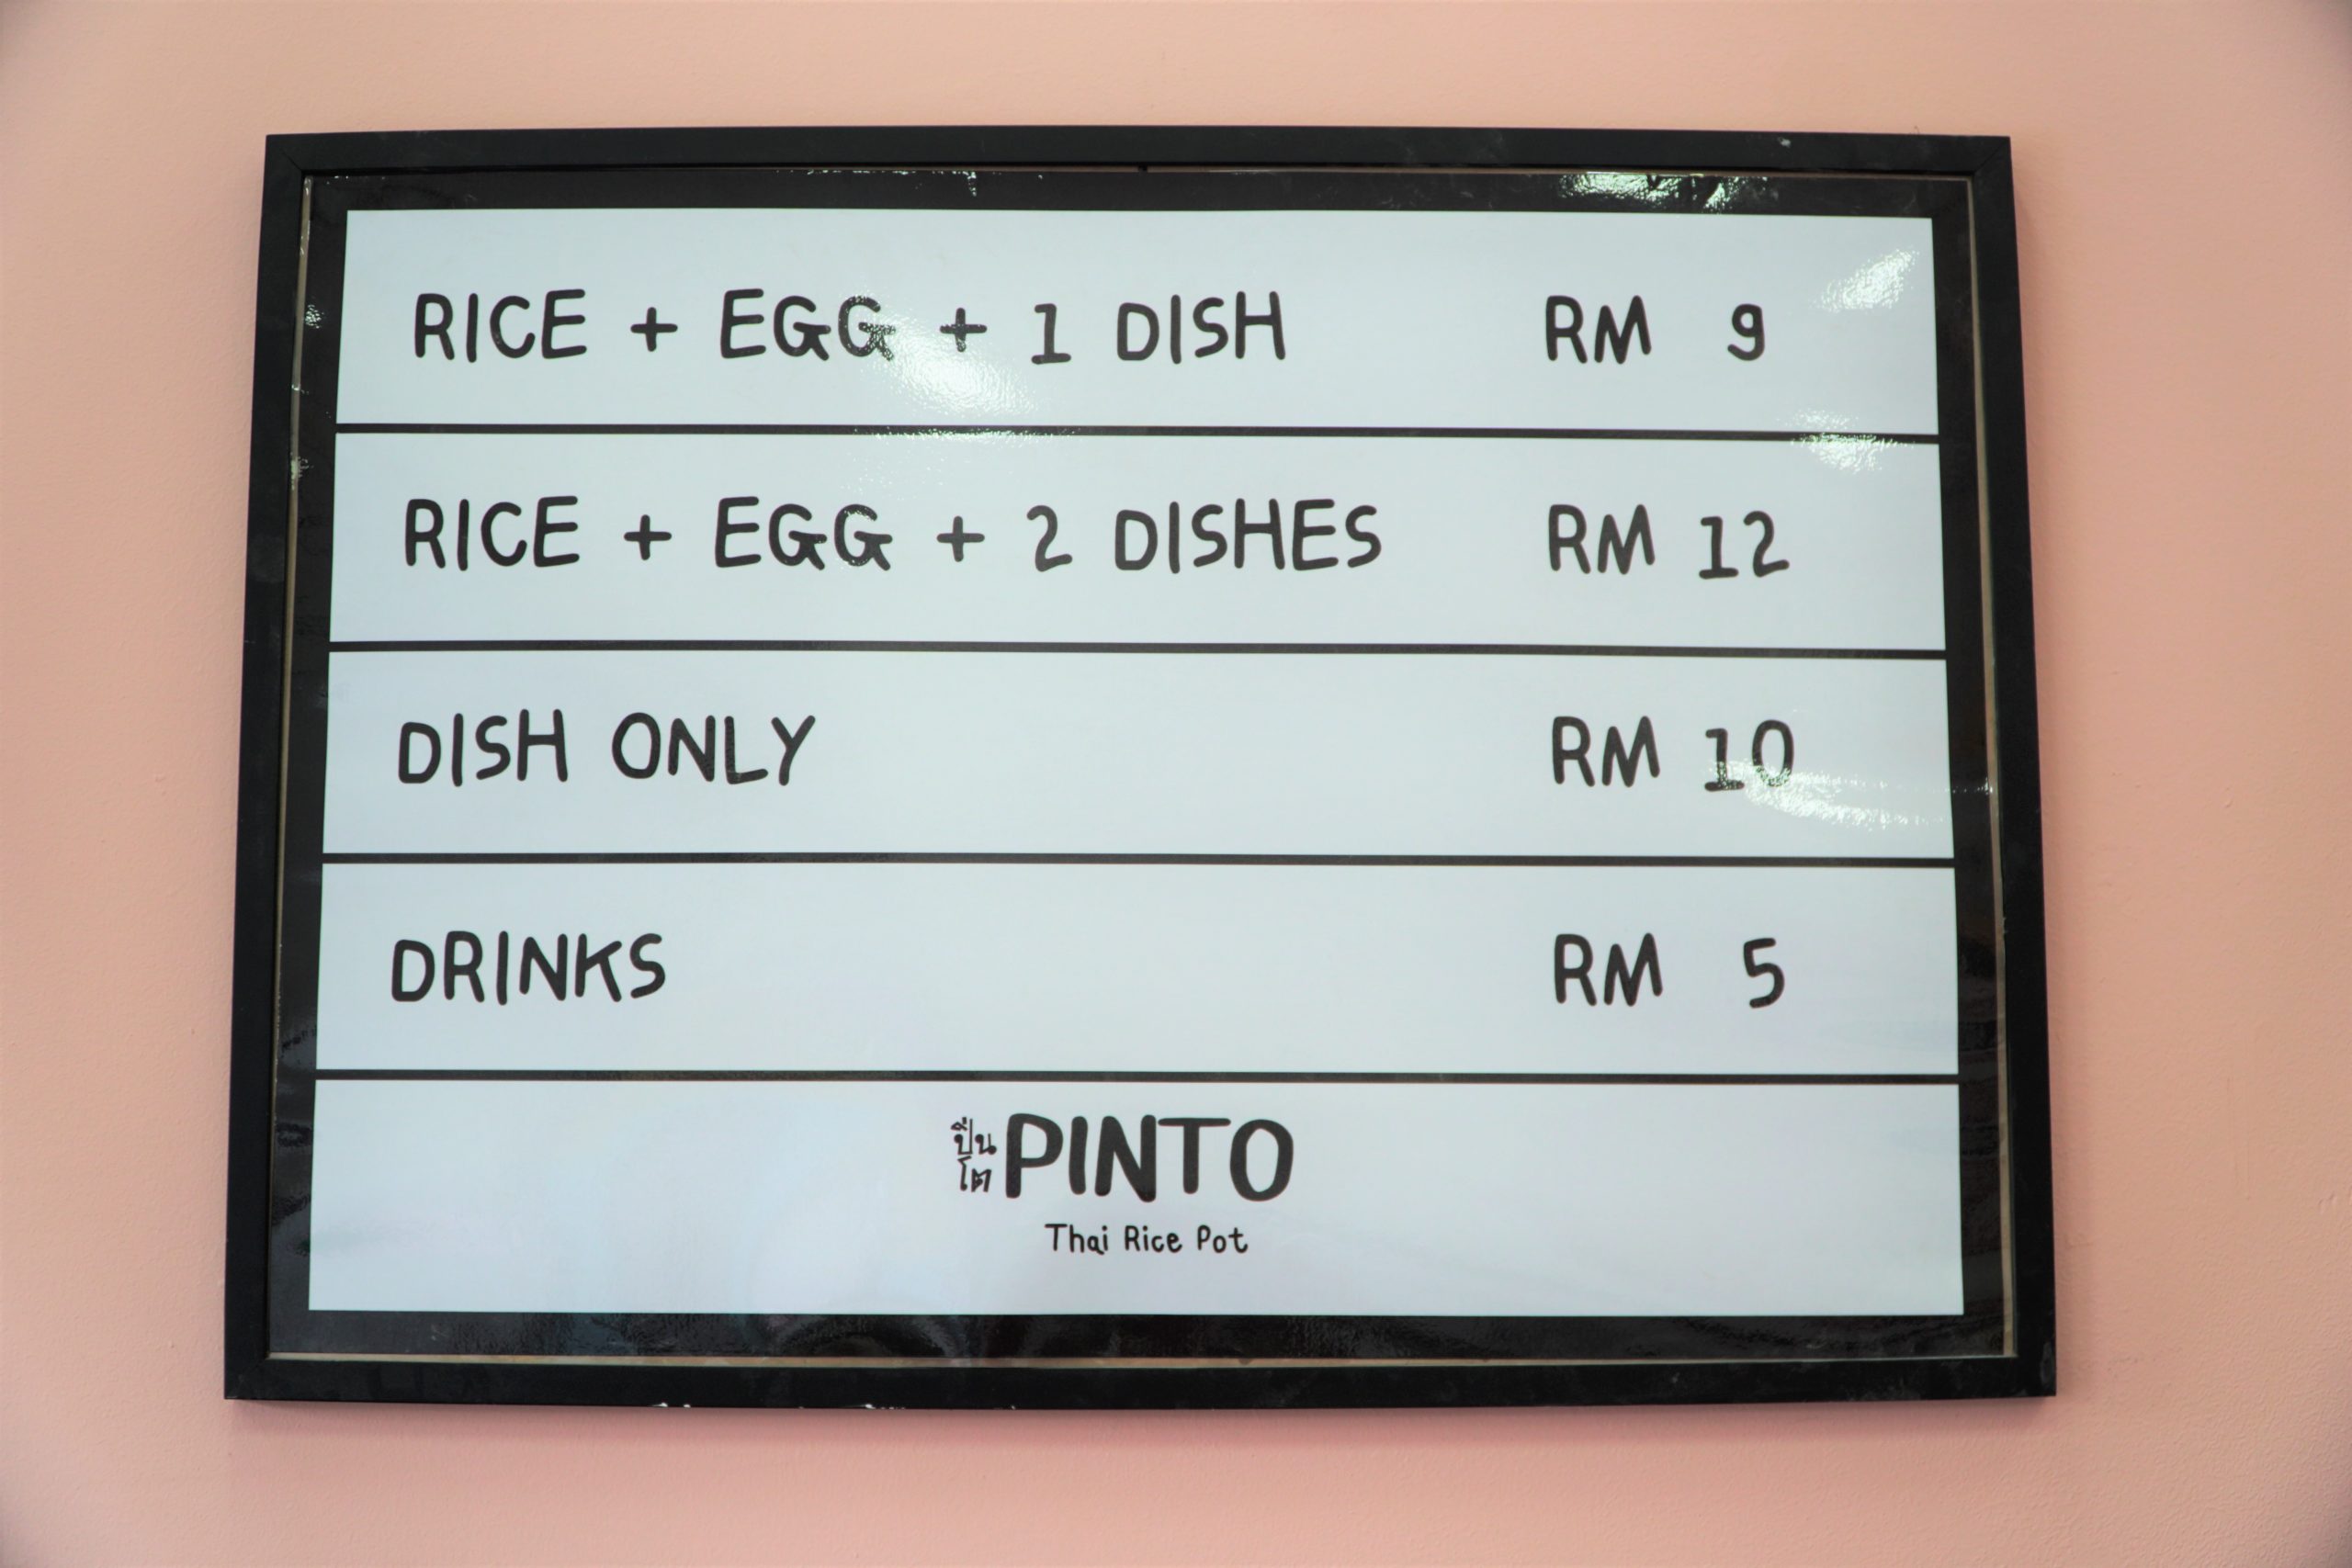 RICE + EGG + 1 DISH RM 9
RICE + EGG + 2 DISHES RM 12
DISH ONLY RM 10
DRINKS RM 5
ปิ่น
โต
PINTO
Thai Rice Pot